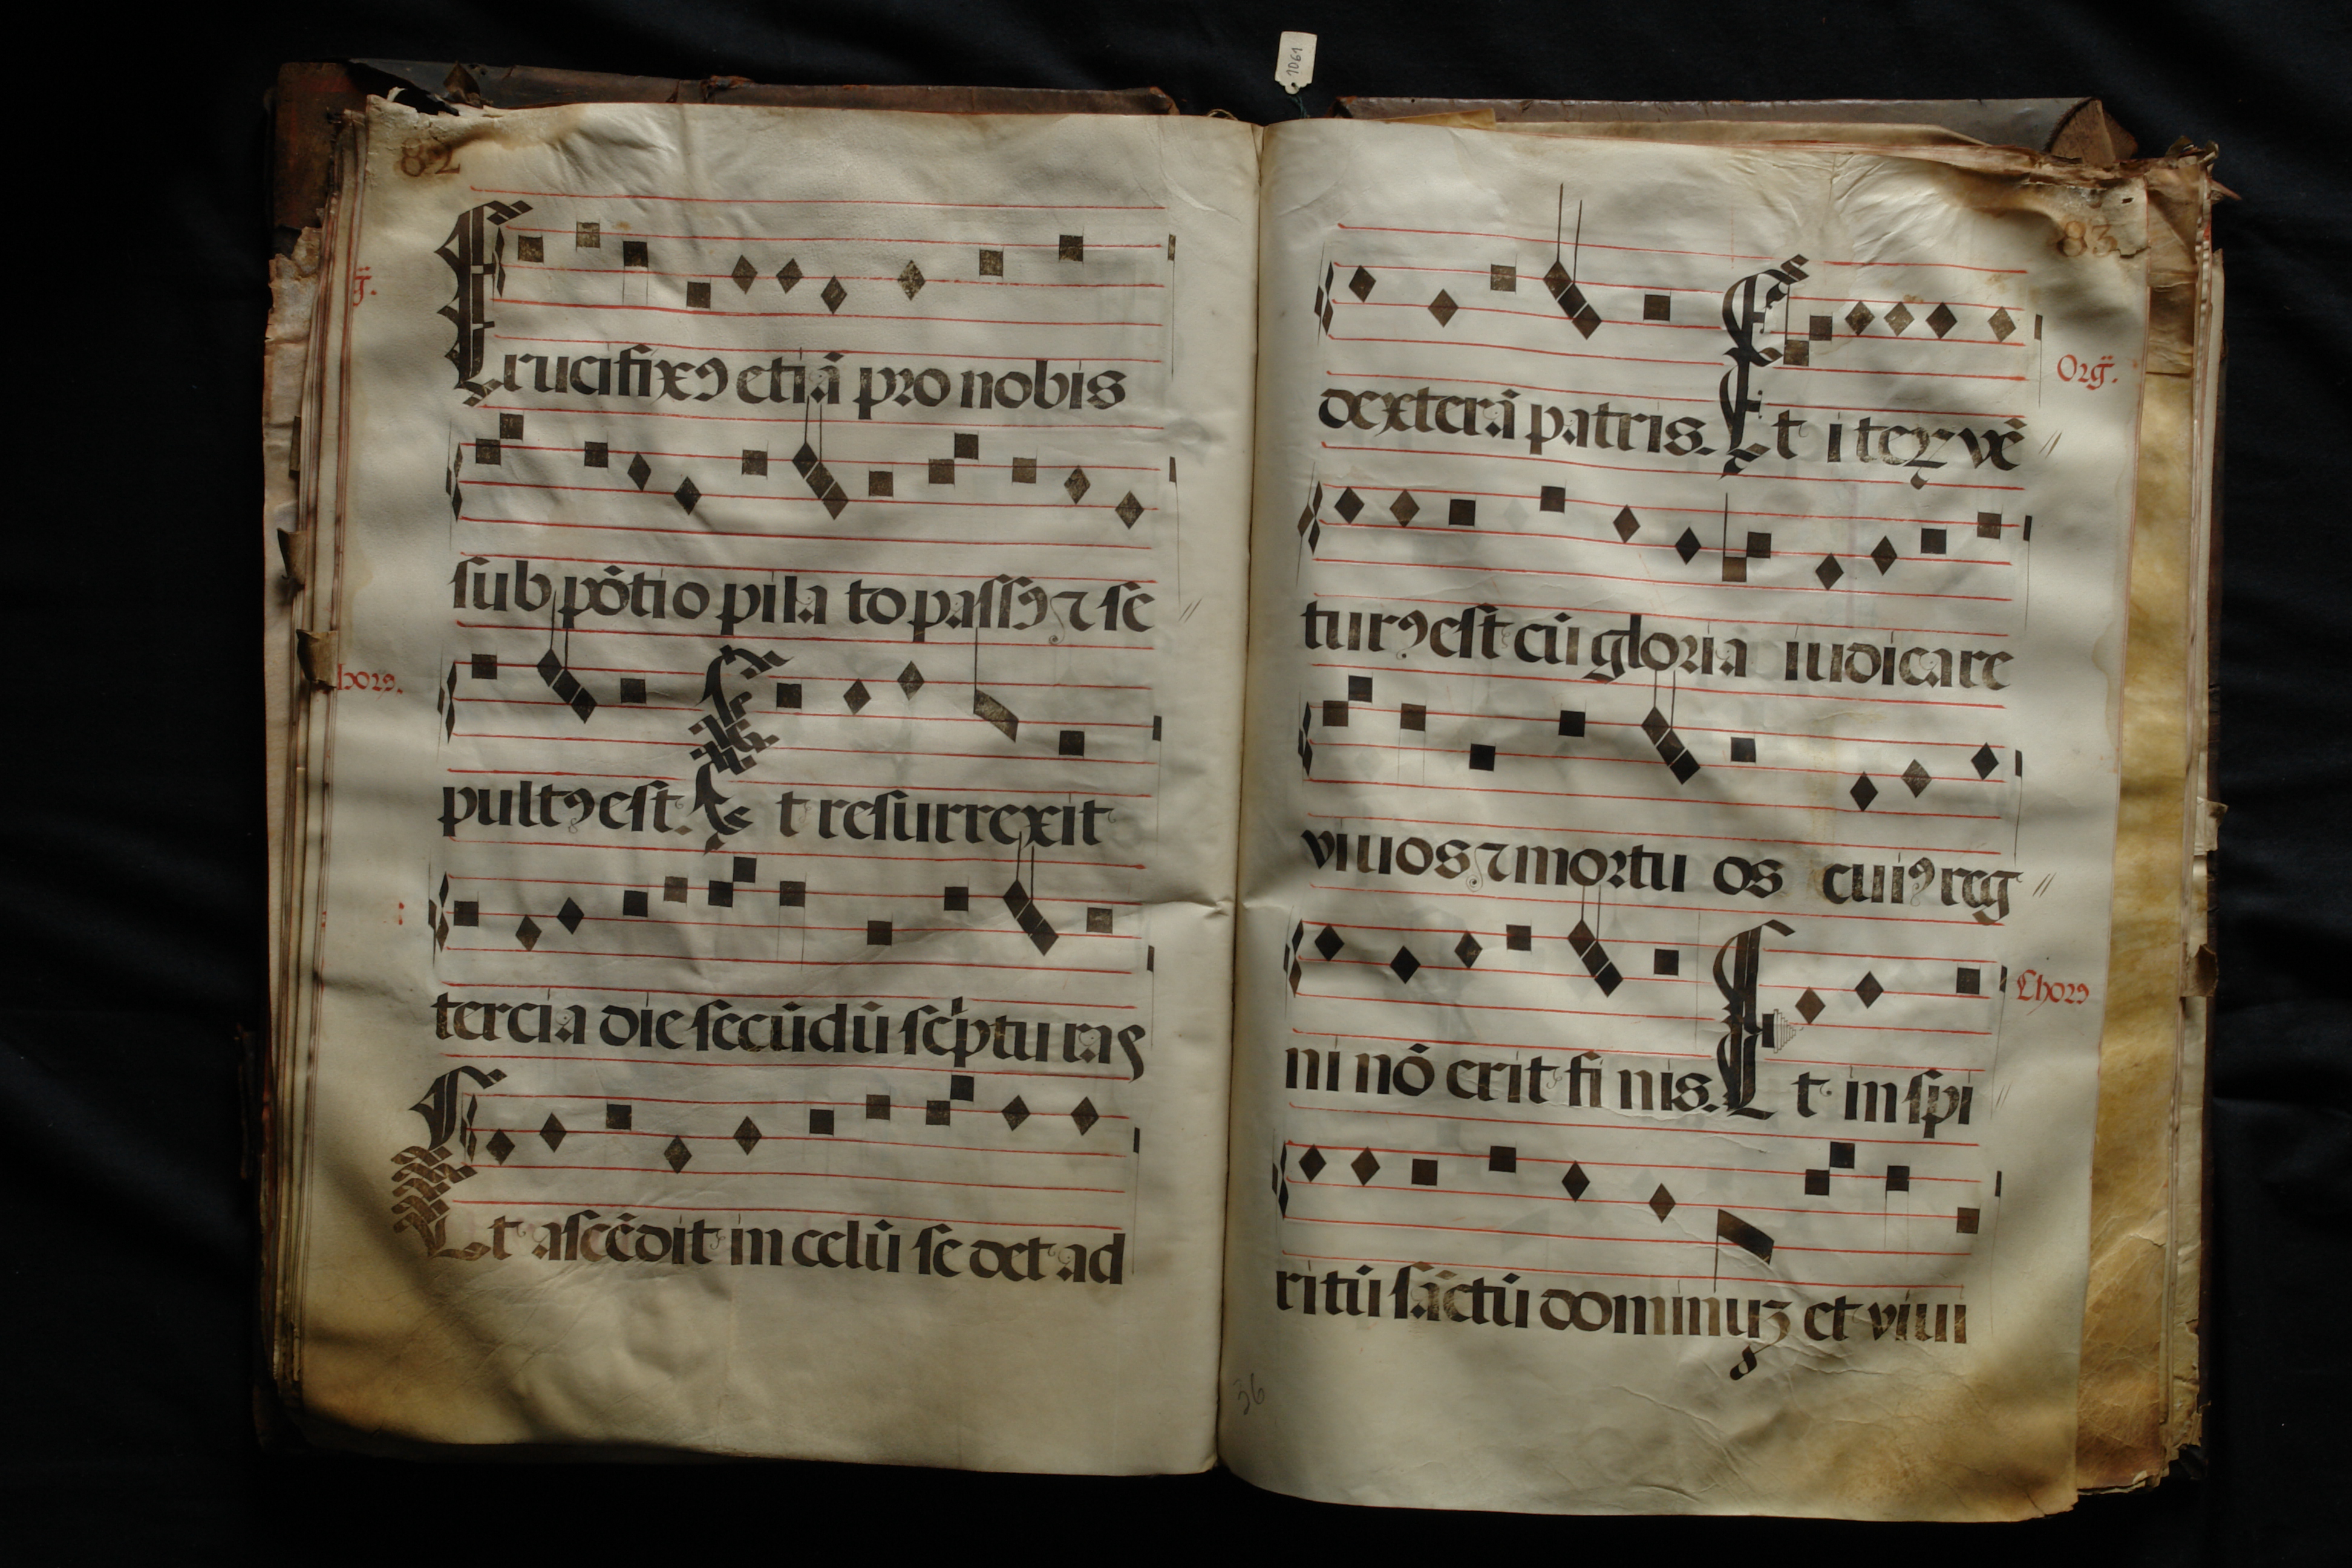 1061
82
g̃.
Crucifixꝯ etiã pro nobis
sub põtio pila to passꝯ ⁊ se //
horꝯ.
pultꝯ est. Et resurrexit
tercia die secũdũ scͥptu ras
:
Et ascẽdit in celũ se det ad
83
dexterã patris. Et iteꝝ vẽ //
Org̃.
turꝯ est cũ gloria iudicare
viuos ⁊ mortu os cuiꝯ reg //
ni nõ erit fi nis. Et in spi //
Chorꝯ
ritũ sãctũ dominuꝫ et viui
36